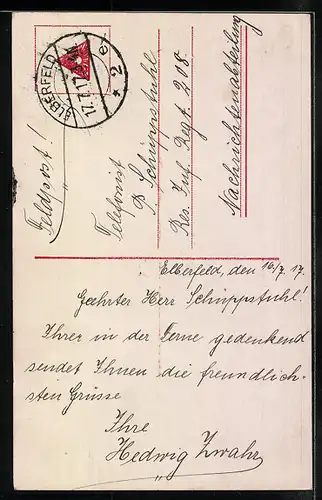 ELBERFELD
17.7.17.
* 2 e
Feldpost!
Telefonist
P Schüppstuhl
Res. Inf. Regt. 208.
Nachrichtenabteilung
Elberfeld, den 16/7. 17.
Geehrter Herr Schüppstuhl!
Ihrer in der Ferne gedenkend
sendet Ihnen die freundlich-
sten Grüsse
Ihre
Hedwig Zwahr